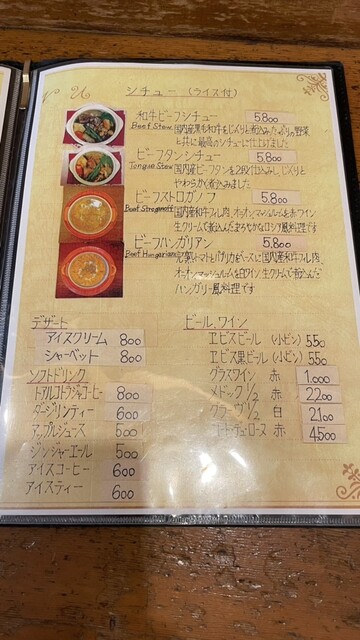 シチュー (ライス付)
和牛ビーフシチュー 5.800
Beef Stew 国産黒毛和牛をじっくりと煮込みたっぷりの野菜
と共に最高のシチューに仕上げました
ビーフタンシチュー 5.800
Tongue Stew 国産ビーフタンを2段仕込みしじっくりと
やわらかく煮込みました
ビーフストロガノフ 5.800
Beef Stroganoff 国産和牛フィレ肉、オニオンマッシュルームを赤ワイン
生クリームで煮込んだまろやかなロシア風料理です
ビーフハンガリアン 5.800
Beef Hungarian トマトパプリカをベースに国産和牛フィレ肉、
オニオンマッシュルームを白ワイン生クリームで煮込んだ
ハンガリー風料理です
デザート
アイスクリーム 800
シャーベット 800
ソフトドリンク
トアルコトラジャコーヒー 800
ダージリンティー 600
アップルジュース 500
ジンジャーエール 500
アイスコーヒー 600
アイスティー 600
ビール、ワイン
ヱビスビール (小ビン) 550
ヱビス黒ビール (小ビン) 550
グラスワイン 赤 1.000
メドック 1/2 赤 2200
グラーヴ 1/2 白 2100
コートデュローヌ 赤 4500